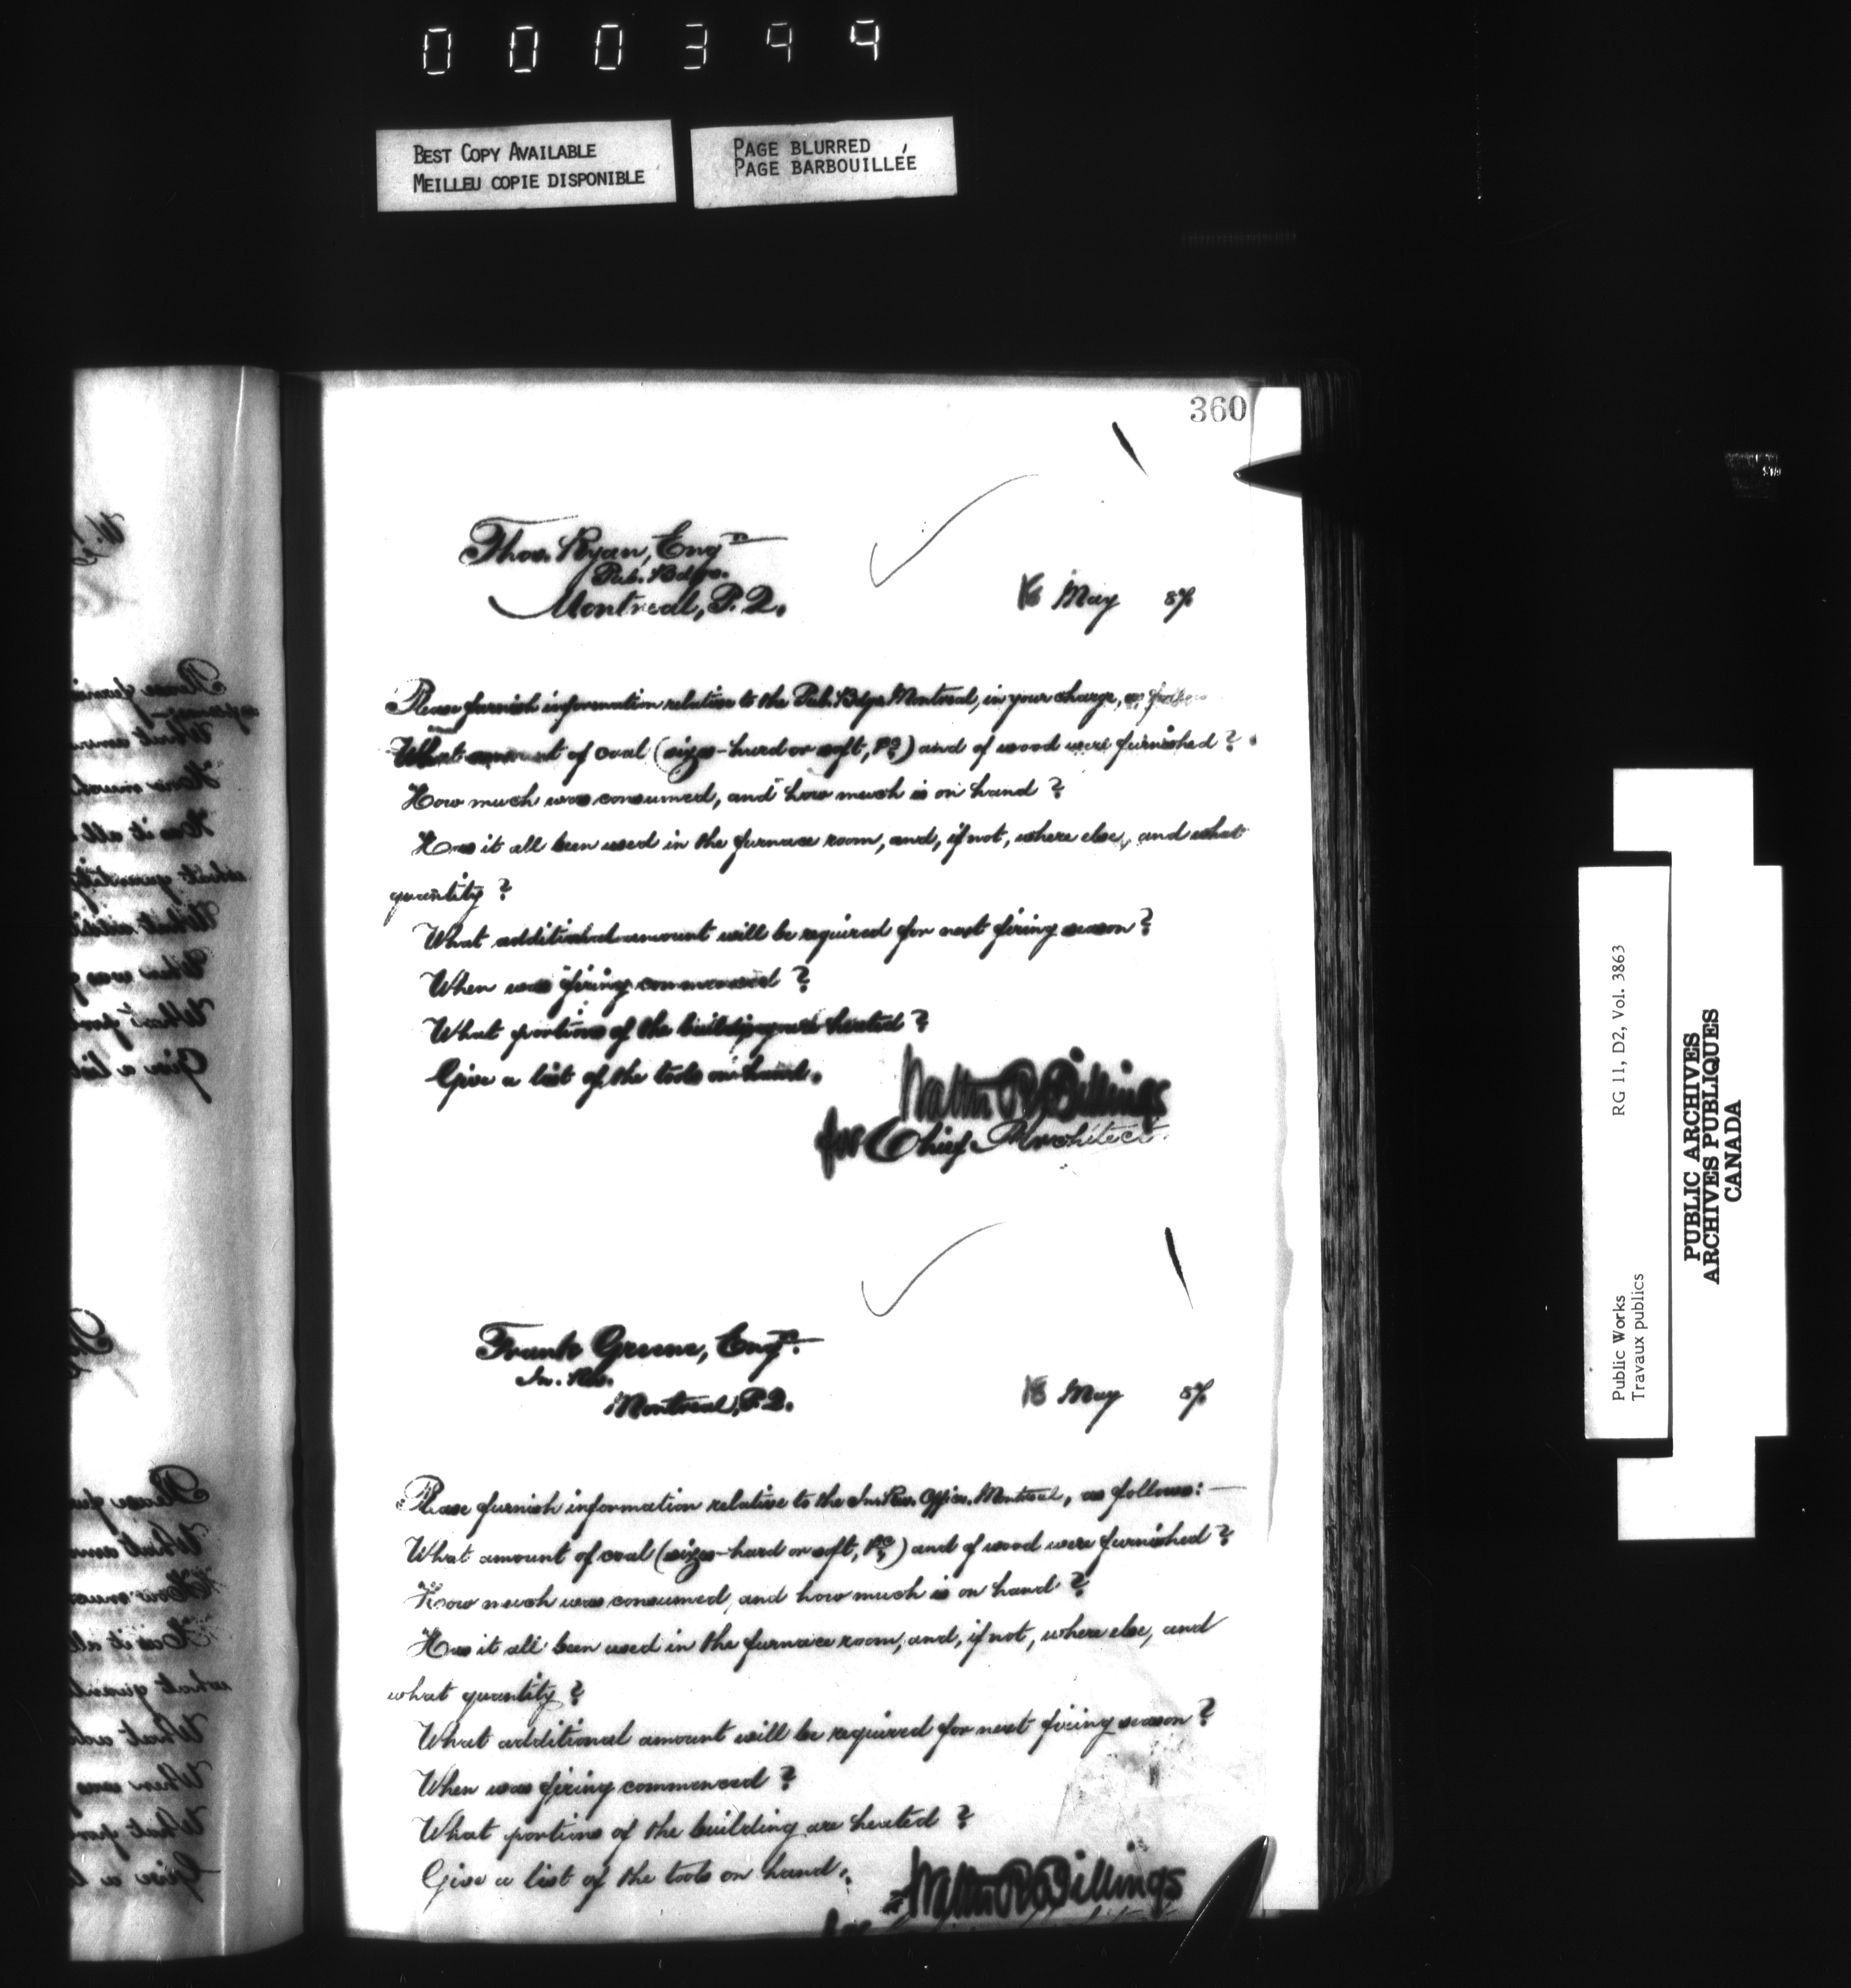 000344
BEST COPY AVAILABLE
MEILLEU COPIE DISPONIBLE
PAGE BLURRED
PAGE BARBOUILLÉE
360
Thos. Ryan, Engr
Pub. Bdgs.
Montreal, P.Q.
18 May 87.
Please furnish information relative to the Pub. Bdgs. Montreal, in your charge, as follows
What amount of coal (sizes - hard or soft, &c) and of wood were furnished?
How much was consumed, and how much is on hand?
Has it all been used in the furnace room, and, if not, where else, and what
quantity?
What additional amount will be required for next firing season?
When was firing commenced?
What portions of the building are heated?
Give a list of the tools on hand.
Walter R. Billings
for Chief Architect.
Frank Greene, Engr.
In. Rev.
Montreal, P.Q.
18 May 87.
Please furnish information relative to the In. Rev. Office, Montreal, as follows:—
What amount of coal (sizes - hard or soft, &c) and of wood were furnished?
How much was consumed, and how much is on hand?
Has it all been used in the furnace room, and, if not, where else, and
what quantity?
What additional amount will be required for next firing season?
When was firing commenced?
What portions of the building are heated?
Give a list of the tools on hand.
Walter R. Billings
for
Public Works
Travaux publics
RG 11, D2, Vol. 3863
PUBLIC ARCHIVES
ARCHIVES PUBLIQUES
CANADA